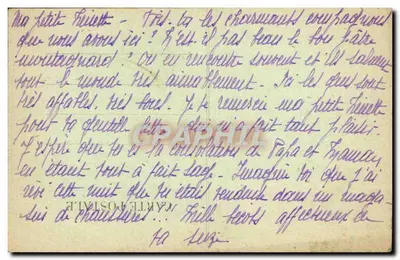 Ma petite Linette - Vois-tu les charmants compagnons
que nous avons ici? N'est il pas beau le bon père
montagnard? On en rencontre souvent et ils saluent
tout le monde très aimablement. Ici les gens sont
très affables, très bons. Je te remercie ma petite Linette
pour ta gentille lettre qui m'a fait tant plaisir.
J'espère que tu es la consolation de Papa et Maman
en étant tout à fait sage. Imagine toi que j'ai
rêvé cette nuit que tu étais vendeuse dans un maga
sin de chaussures!!! Mille bécots affectueux de
ta
CARTE POSTALE
PRCARTP